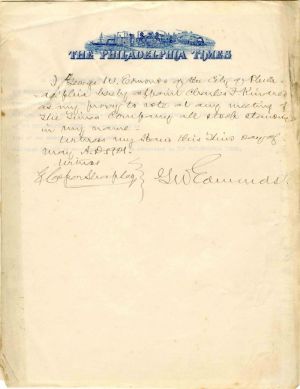 THE PHILADELPHIA TIMES
I George W. Edmonds of the City of Phila
delphia hereby appoint Charles F Kindred
as my proxy to vote at any meeting of
The Times Company all stock standing
in my name.
Witness my hand this First Day of
May A.D. 1901.
Witness
G W Edmonds